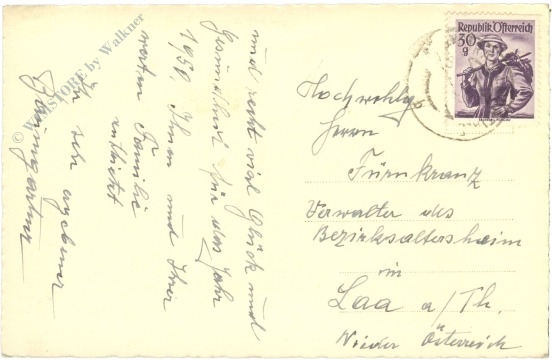 und recht viel Glück und
Gesundheit für das Jahr
1950 Ihnen und Ihrer
werten Familie
entbietet
Ihr sehr ergebener
Baumgartner
Hochwohlg.
Herrn
Fürnkranz
Verwalter des
Bezirksaltersheim
in
Laa a/Th.
Nieder Österreich
Republik Österreich
30
g
© WWMSTORE by Walkner